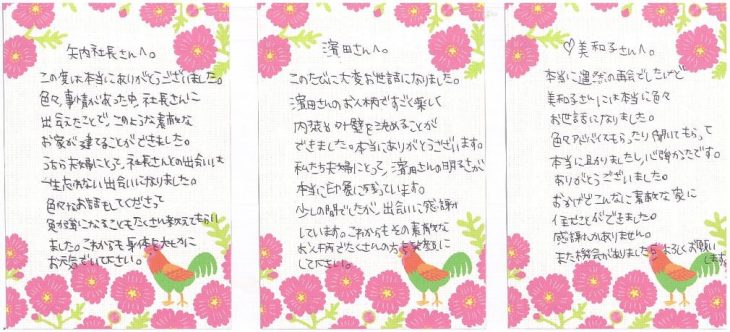 矢内社長さんへ。
この度は本当にありがとうございました。
色々、事情があった中、社長さんに
出会えたことで、このような素敵な
お家が建てることができました。
うちら夫婦にとって、社長さんとの出会いは
一生忘れない出会いになりました。
色々とお話もしてくださって
勉強になることもたくさん教えてもらい
ました。これからも身体を大切に
お元気でいて下さい。
濱田さんへ。
このたびは大変お世話になりました。
濱田さんのお人柄ですごく楽しく
内装と外壁を決めることが
できました。本当にありがとうございます。
私たち夫婦にとって、濱田さんの明るさが
本当に印象に残っています。
少しの間でしたが、出会いに感謝
しています。これからもその素敵な
お人柄でたくさんの方を笑顔に
して下さい。
♡美和子さんへ。
本当に偶然の再会でしたけど
美和子さんには本当に色々
お世話になりました。
色々アドバイスもらったり聞いてもらって
本当に助かりましたし、心強かったです。
ありがとうございました。
おかげでこんなに素敵な家に
住むことができました。
感謝しかありません。
また機会がありましたらよろしくお願い
します。